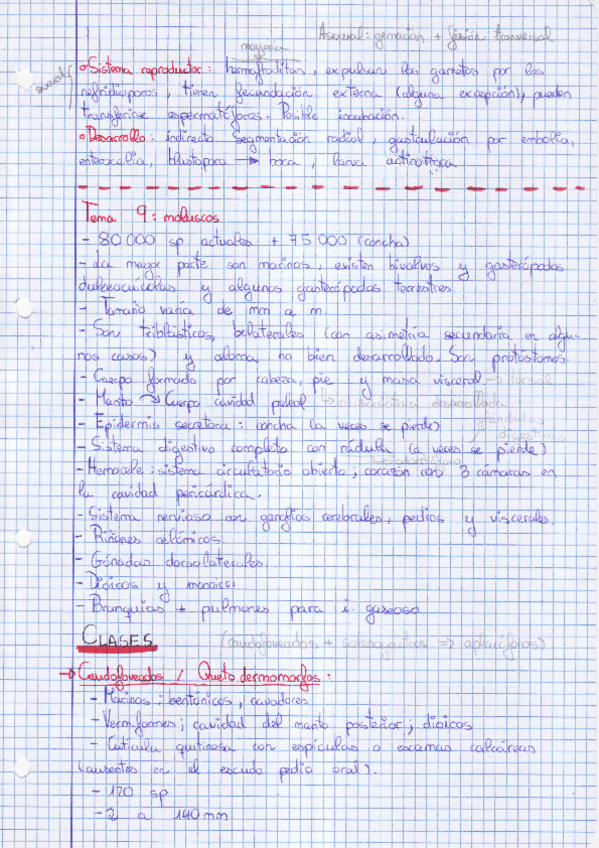 Asexual: gemación + fisión trasversal
mayoría
sexual
Sistema reproductor: hermafroditas, expulsan los gametos por los
nefridioporos, tienen fecundación externa (alguna excepción), pueden
transferirse espermatóforos. Posible incubación.
Desarrollo: indirecto segmentación radial, gastrulación por embolia,
enterocelia, blastoporo → boca, larva actinotroca
Tema 9: moluscos
- 80000 sp actuales + 75000 (concha)
- La mayor parte son marinos, existen bivalvos y gasterópodos
dulceacuícolas y algunos gasterópodos terrestres
- Tamaño varía de mm a m
- Son triblásticos, bilaterales (con asimetría secundaria en algu-
nos casos) y celoma no bien desarrollado. Son protóstomos.
- Cuerpo formado por cabeza, pie y masa visceral → dorsal
- Manto → Cuerpo cavidad paleal
- Epidermis secretora: concha (a veces se pierde)
glándula
- Sistema digestivo completo con rádula (a veces se pierde)
- Hemocele: sistema circulatorio abierto; corazón con 3 cámaras en
la cavidad pericárdica.
- Sistema nervioso con ganglios cerebrales, pedios y viscerales.
- Riñones celómicos.
- Gónadas dorsolaterales.
- Dioicos y monoicos
- Branquias + pulmones para i. gaseoso
CLASES
(caudofoveados + solenogastros => aplacóforos)
→ Caudofoveados / Quetodermomorfos:
- Marinos; bentónicos, cavadores
- Vermiformes; cavidad del manto posterior; dioicos
- Cutícula quitinosa con espículas o escamas calcáreas
(ausentes en el escudo pedio oral).
- 120 sp
- 2 a 140mm